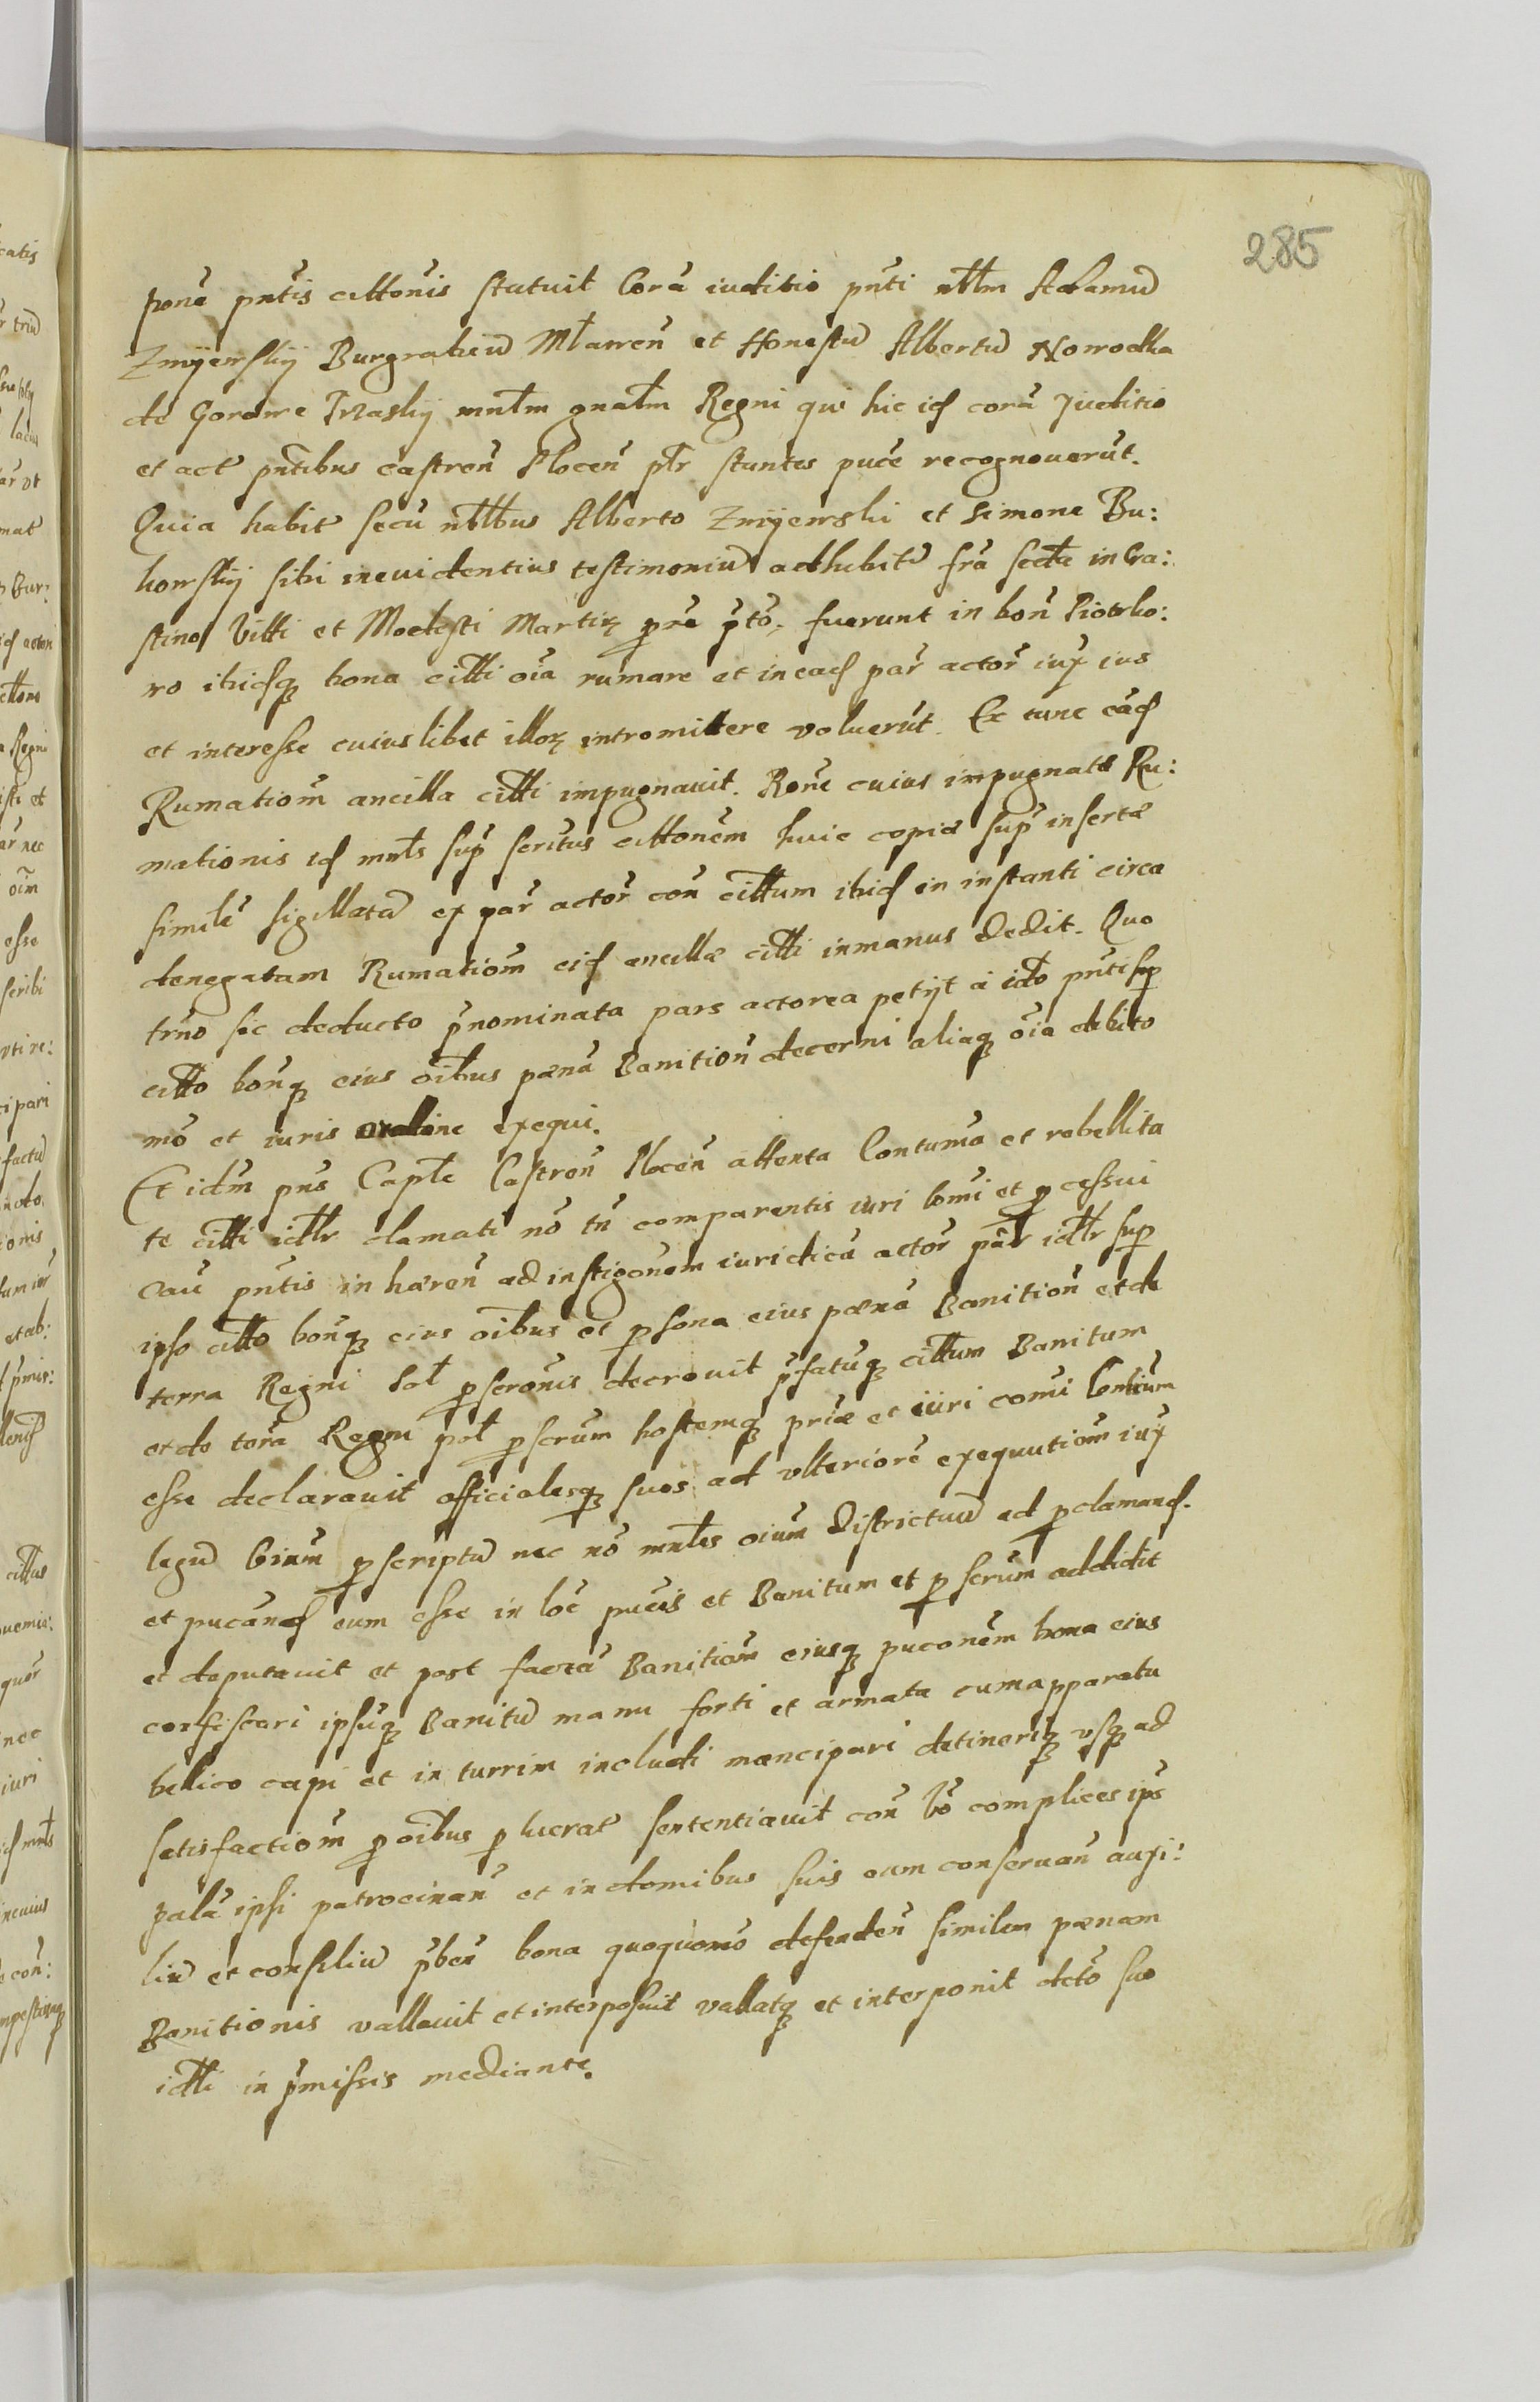 285
ponẽ pñtis cittõnis statuit Corã iuditio pñti nblm Adamũ
Zmijewskij Burgrabiũ Mławeñ et Honestũ Albertũ Nowodka
de Gorowe Trzaskij mnlm gnalm Regni qui hic id corã Juditio
et act pñtibus castreñ Plocen plr stantes puce recognouerũt.
Quia habit secũ nblbus Alberto Zmijewski et Simone Bu:
kowskij sibi in euidentius testimoniũ adhibit frã scda in Cra:
stino Viti et Modesti Martir pre pto, fuerunt in boñ Piotrko:
wo ibidq bona citti oĩa rumare et in ead par actor iux ius
et interesse cuiuslibet illor intromittere voluerũt. Ex tunc eãd
Rumatiom ancilla citti impugnauit. Rone cuius impugnatæ Ru:
mationis id mnls sup scritus cittonem huic copiæ sup insertæ
simile sigillatã ex par actor coñ cittum ibid in instanti circa
denegatam Rumatiom eid ancillæ citti in manus dedit. Quo
trno sic deducto p̃nominata pars actorea petijt a idõ pñti sup
citto bonq eius oibus pænã Banitioñ decerni aliaq oĩa debito
mõ et iuris ordine exequi.
Et idm pñs Caplẽ Castreñ Plocen attenta Contumã et rebellita
te citti idtr clamati nõ tñ comparentis iuri cõmi et pcessui
cau pñtis inhæreñ ad instigonem iuridicã actor par idtr sup
ipso citto bonq eius oibus et psona eius pænã Banitioñ et de
terra Regni Pol pscronis decreuit p̃fatuq cittum Banitum
et de terã Regni pol pscrum hostemq priæ et iuri comi Contrium
esse declarauit officialesq suos ad vlteriorẽ exequutiom iux
legũ prescriptũ nec nõ mnles oium districtuũ ad pclamand.
et pucand eum esse in loc pucis et Banitum et pscrum addidit
et deputauit et post factã Banitiom eiusq puconem bona eius
confiscari ipsuq Banitũ manu forti et armata cum apparatu
belico capi et in turrim includi mancipari detineriq vsq ad
satisfactiom p oibus p lucrat sententiauit coñ võ complices ips
palã ipsi patrocinañ et in domibus suis eum conseruañ auxi:
liũ et consiliũ p̃beñ bona quoquomõ defendeñ similem pænam
Banitionis vallauit et interposuit vallatq et interponit deto suo
idtli in p̃missis mediante.